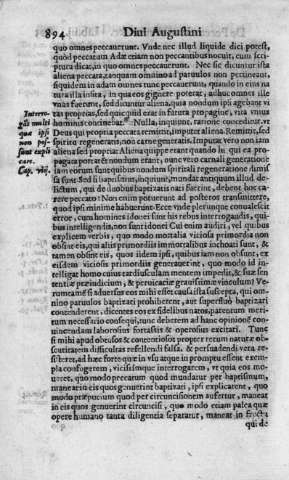 894 Diui Augustini
quo omnes peccauerunt. Vnde nec illud liquidè dici potest,
quòd peccatum Adæ etiam non peccantibus nocuit, cum scri-
ptura dicat, in quo omnes peccauerunt. Nec sic dicuntur ista
aliena peccata, tanquam omnino ad paruulos non pertineant,
siquidem in Adam omnes tunc peccauerunt, quando in eius na-
tura illa insita, in qua eos gignere poterat, adhuc omnes ille
vnus fuerunt, sed dicuntur aliena, quia nondum ipsi agebant vi
tas proprias, sed quicquid erat in futura propagine, vita vnius
hominis continebat. Nulla, inquiunt, ratione conceditur, vt
Deus qui propria peccata remittit, imputet aliena. Remittit, sed
spiritu regeneratis, non carne generatis. Imputat verò non iam
aliena sed propria. Aliena quippe erant quando hi qui ea pro-
pagata portarēt nondum erant, nunc verò carnali generatione
iam eorum sunt, quibus nondum spiritali regeneratione dimis
sa sunt. Sed si baptismus, inquiunt, mundat antiquum illud de-
lictum, qui de duobus baptizatis nati fuerint, debent hoc ca-
rere peccato: Non enim potuerunt ad posteros transmittere,
quod ipsi minimè habuerunt. Ecce vnde plerunque conualescit
error, cum homines idonei sunt his rebus interrogandis, qui-
bus intelligendis, non sunt idonei. Cui enim auditori, vel quibus
explicem verbis, quo modo mortalia vitiosa primordia non
obsint eis, qui aliis primordiis immortalibus inchoati sunt, &
tamen obsint eis, quos iidem ipsi, quibus iam non obsunt, ex
eisdem vitiosis primordiis generauerint, quo modo id in-
telligat homo cuius tardiusculam mentem impedit, & suæ sen
tentiæ præiudicium, & peruicaciæ grauissimæ vinculum? Ve-
runtamen si aduersus eos mihi esset causa ista suscepta, qui om-
nino paruulos baptizari prohiberent, aut superfluò baptizari
contenderent, dicentes eos ex fidelibus natos, parentum meri-
tum necessariò consequi, tunc deberem ad hanc opinionē con-
uincendam laboriosius fortassis & operosius excitari. Tunc
si mihi apud obtusos & contentiosos propter rerum naturæ ob-
scuritatem difficultas refellendi falsa, & persuadendi vera, re-
sisteret, ad hæc fortè quæ in vsu atque in promptu essent exem-
pla confugerem, vicissimque interrogarem, vt quia eos mo-
ueret, quo modo peccatum quod mundatur per baptismum,
maneat in eis quos genuerint baptizati, ipsi explicarent, quo
modo præputium quod per circuncisionem aufertur, maneat
in eis quos genuerint circuncisi, quo modo etiam palea quæ
opere humano tanta diligentia separatur, maneat in fructu
qui de
Interro-
gāt multi
quæ ipsi
non pos-
sunt expli
care.
Cap. viij.